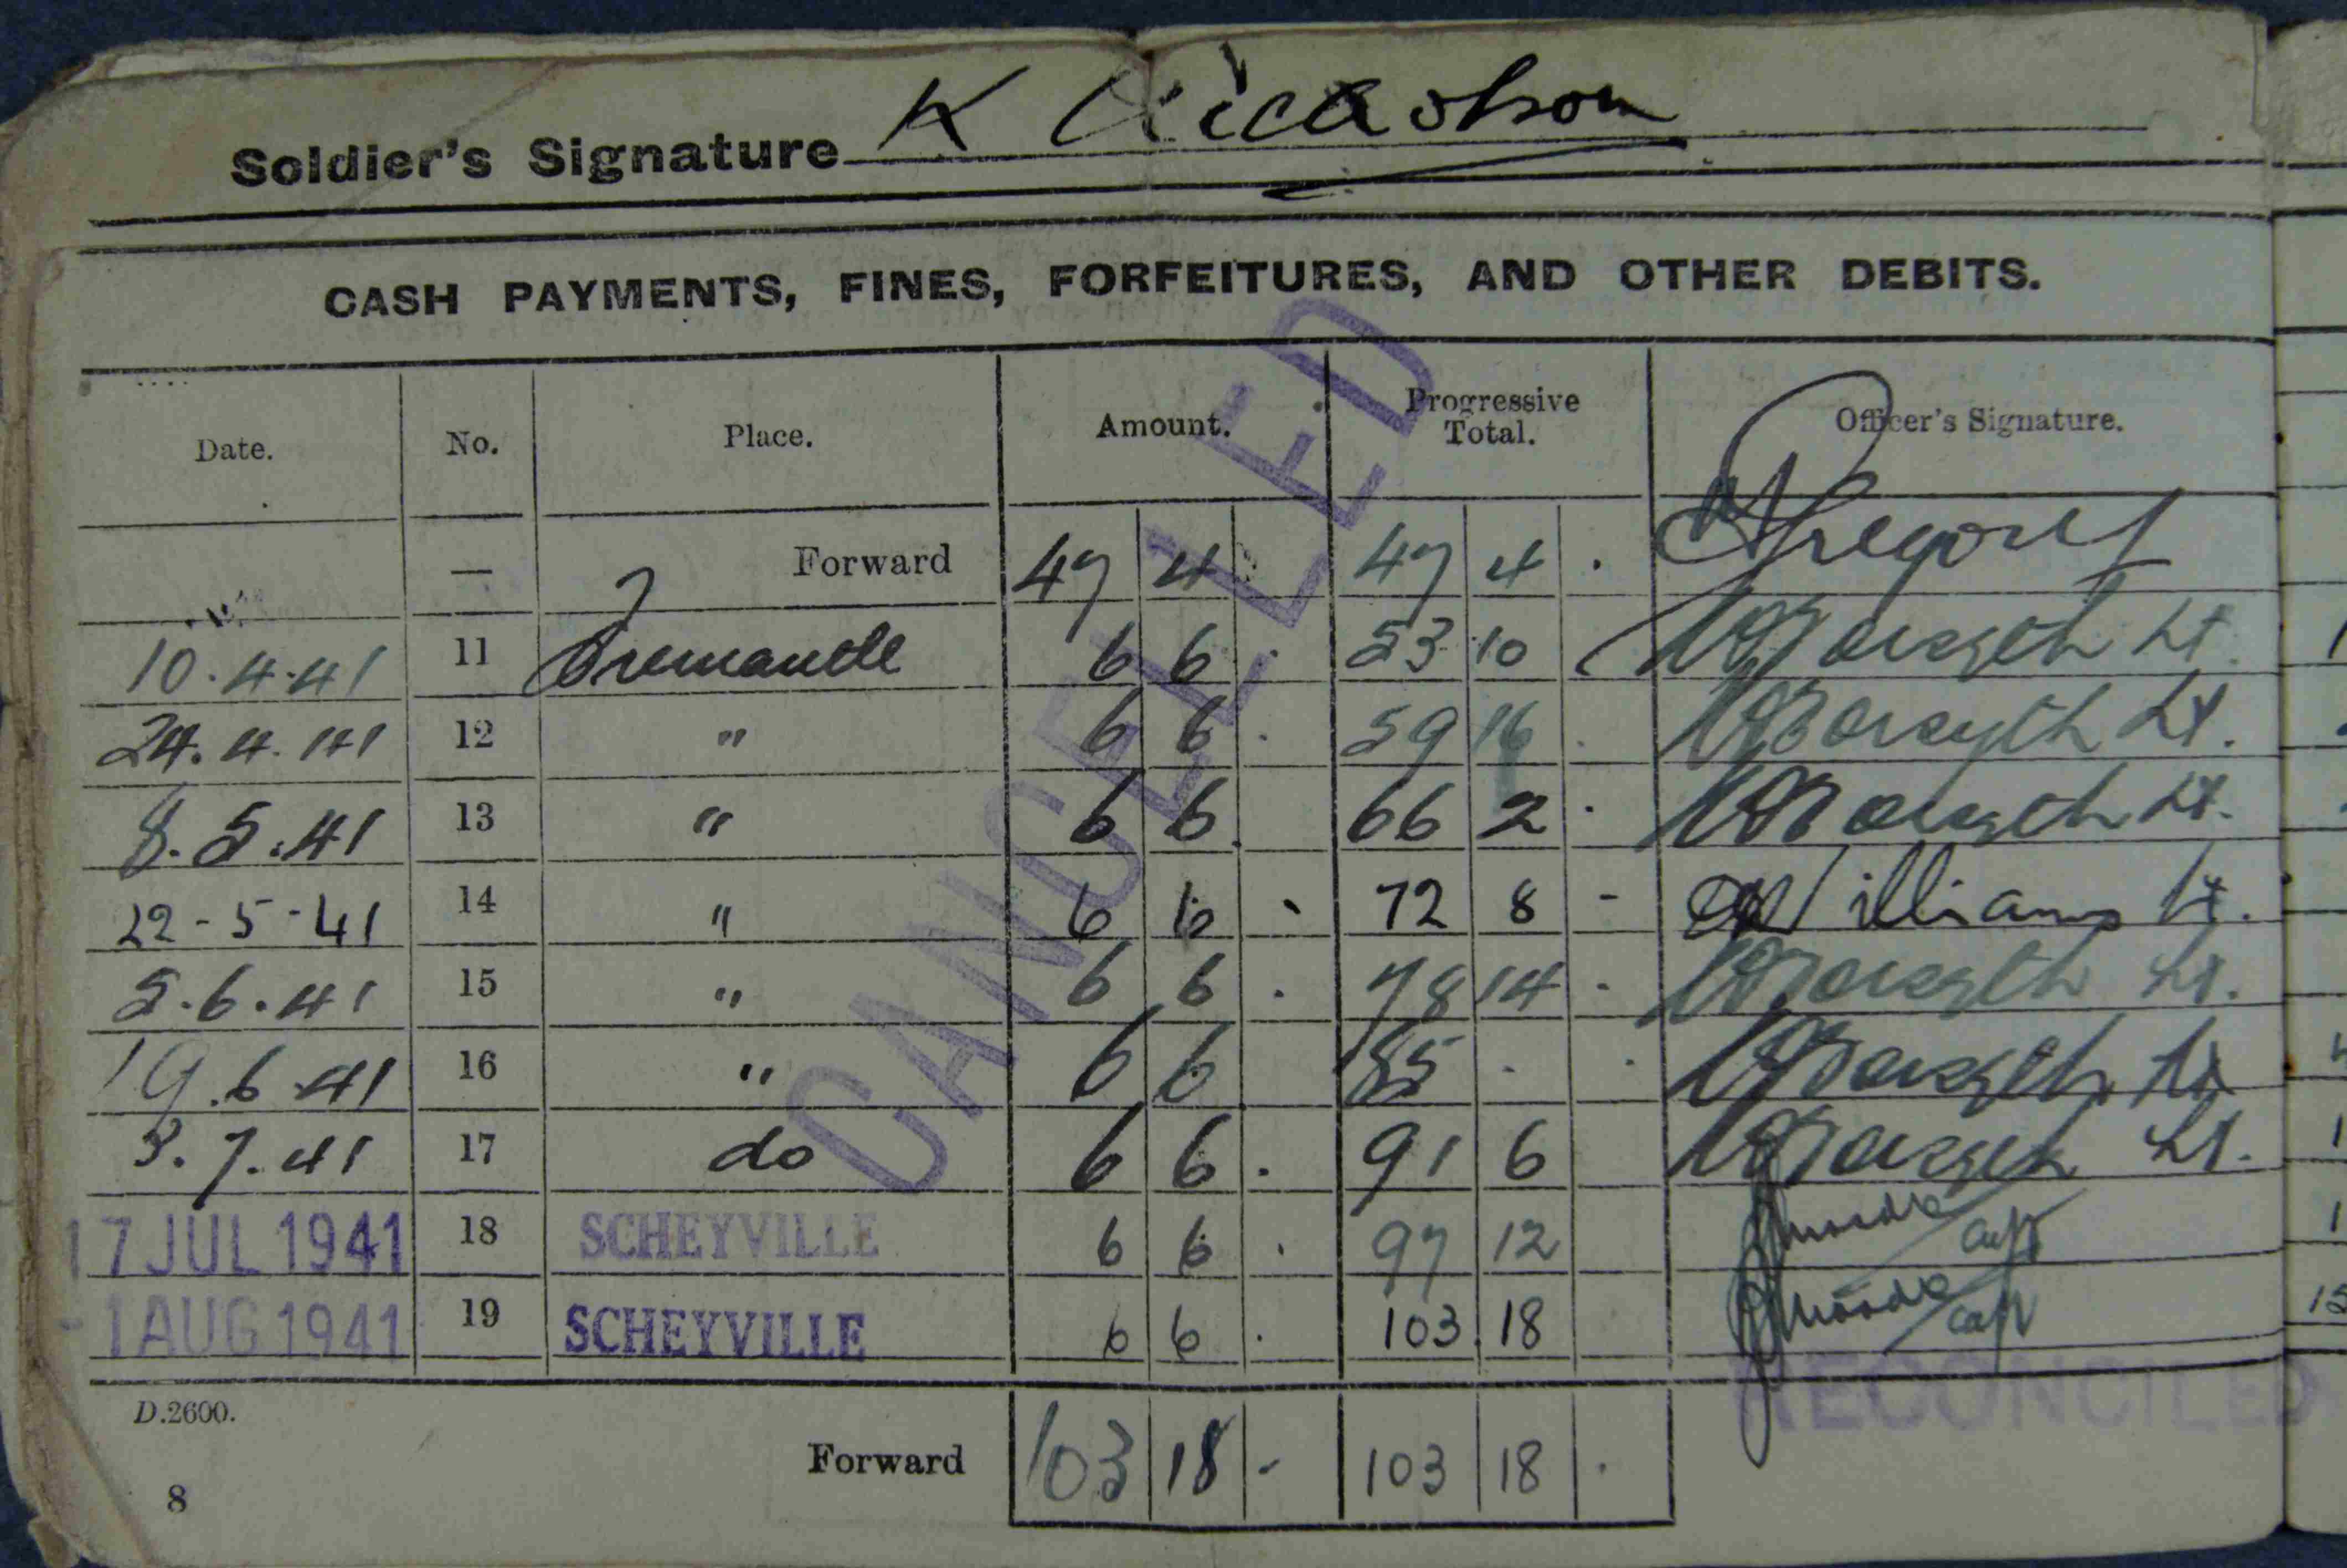 Soldier's Signature K Nicholson
CASH PAYMENTS, FINES, FORFEITURES, AND OTHER DEBITS.
Date. No. Place. Amount. Progressive Total. Officer's Signature.
— Forward 47 4 47 4 . Gregory
10.4.41 11 Fremantle 6 6 . 53 10 Forsyth Lt.
24.4.41 12 " 6 6 . 59 16 . Forsyth Lt.
8.5.41 13 " 6 6 . 66 2 . Forsyth Lt.
22-5-41 14 " 6 6 - 72 8 - Williams Lt.
5.6.41 15 " 6 6 . 78 14 . Forsyth Lt.
19.6.41 16 " 6 6 85 . . Forsyth Lt
3.7.41 17 do 6 6 . 91 6 Forsyth Lt.
17 JUL 1941 18 SCHEYVILLE 6 6 . 97 12 Capt
-1 AUG 1941 19 SCHEYVILLE 6 6 . 103 18 Capt
CANCELLED
RECONCILED
D.2600.
Forward 103 18 - 103 18 .
8